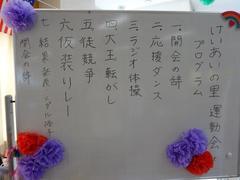 けいあいの里 運動会
プログラム
一.開会の辞
二.応援ダンス
三.ラジオ体操
四.大玉転がし
五.徒競争
六.仮装リレー
七.結果発表
閉会の辞